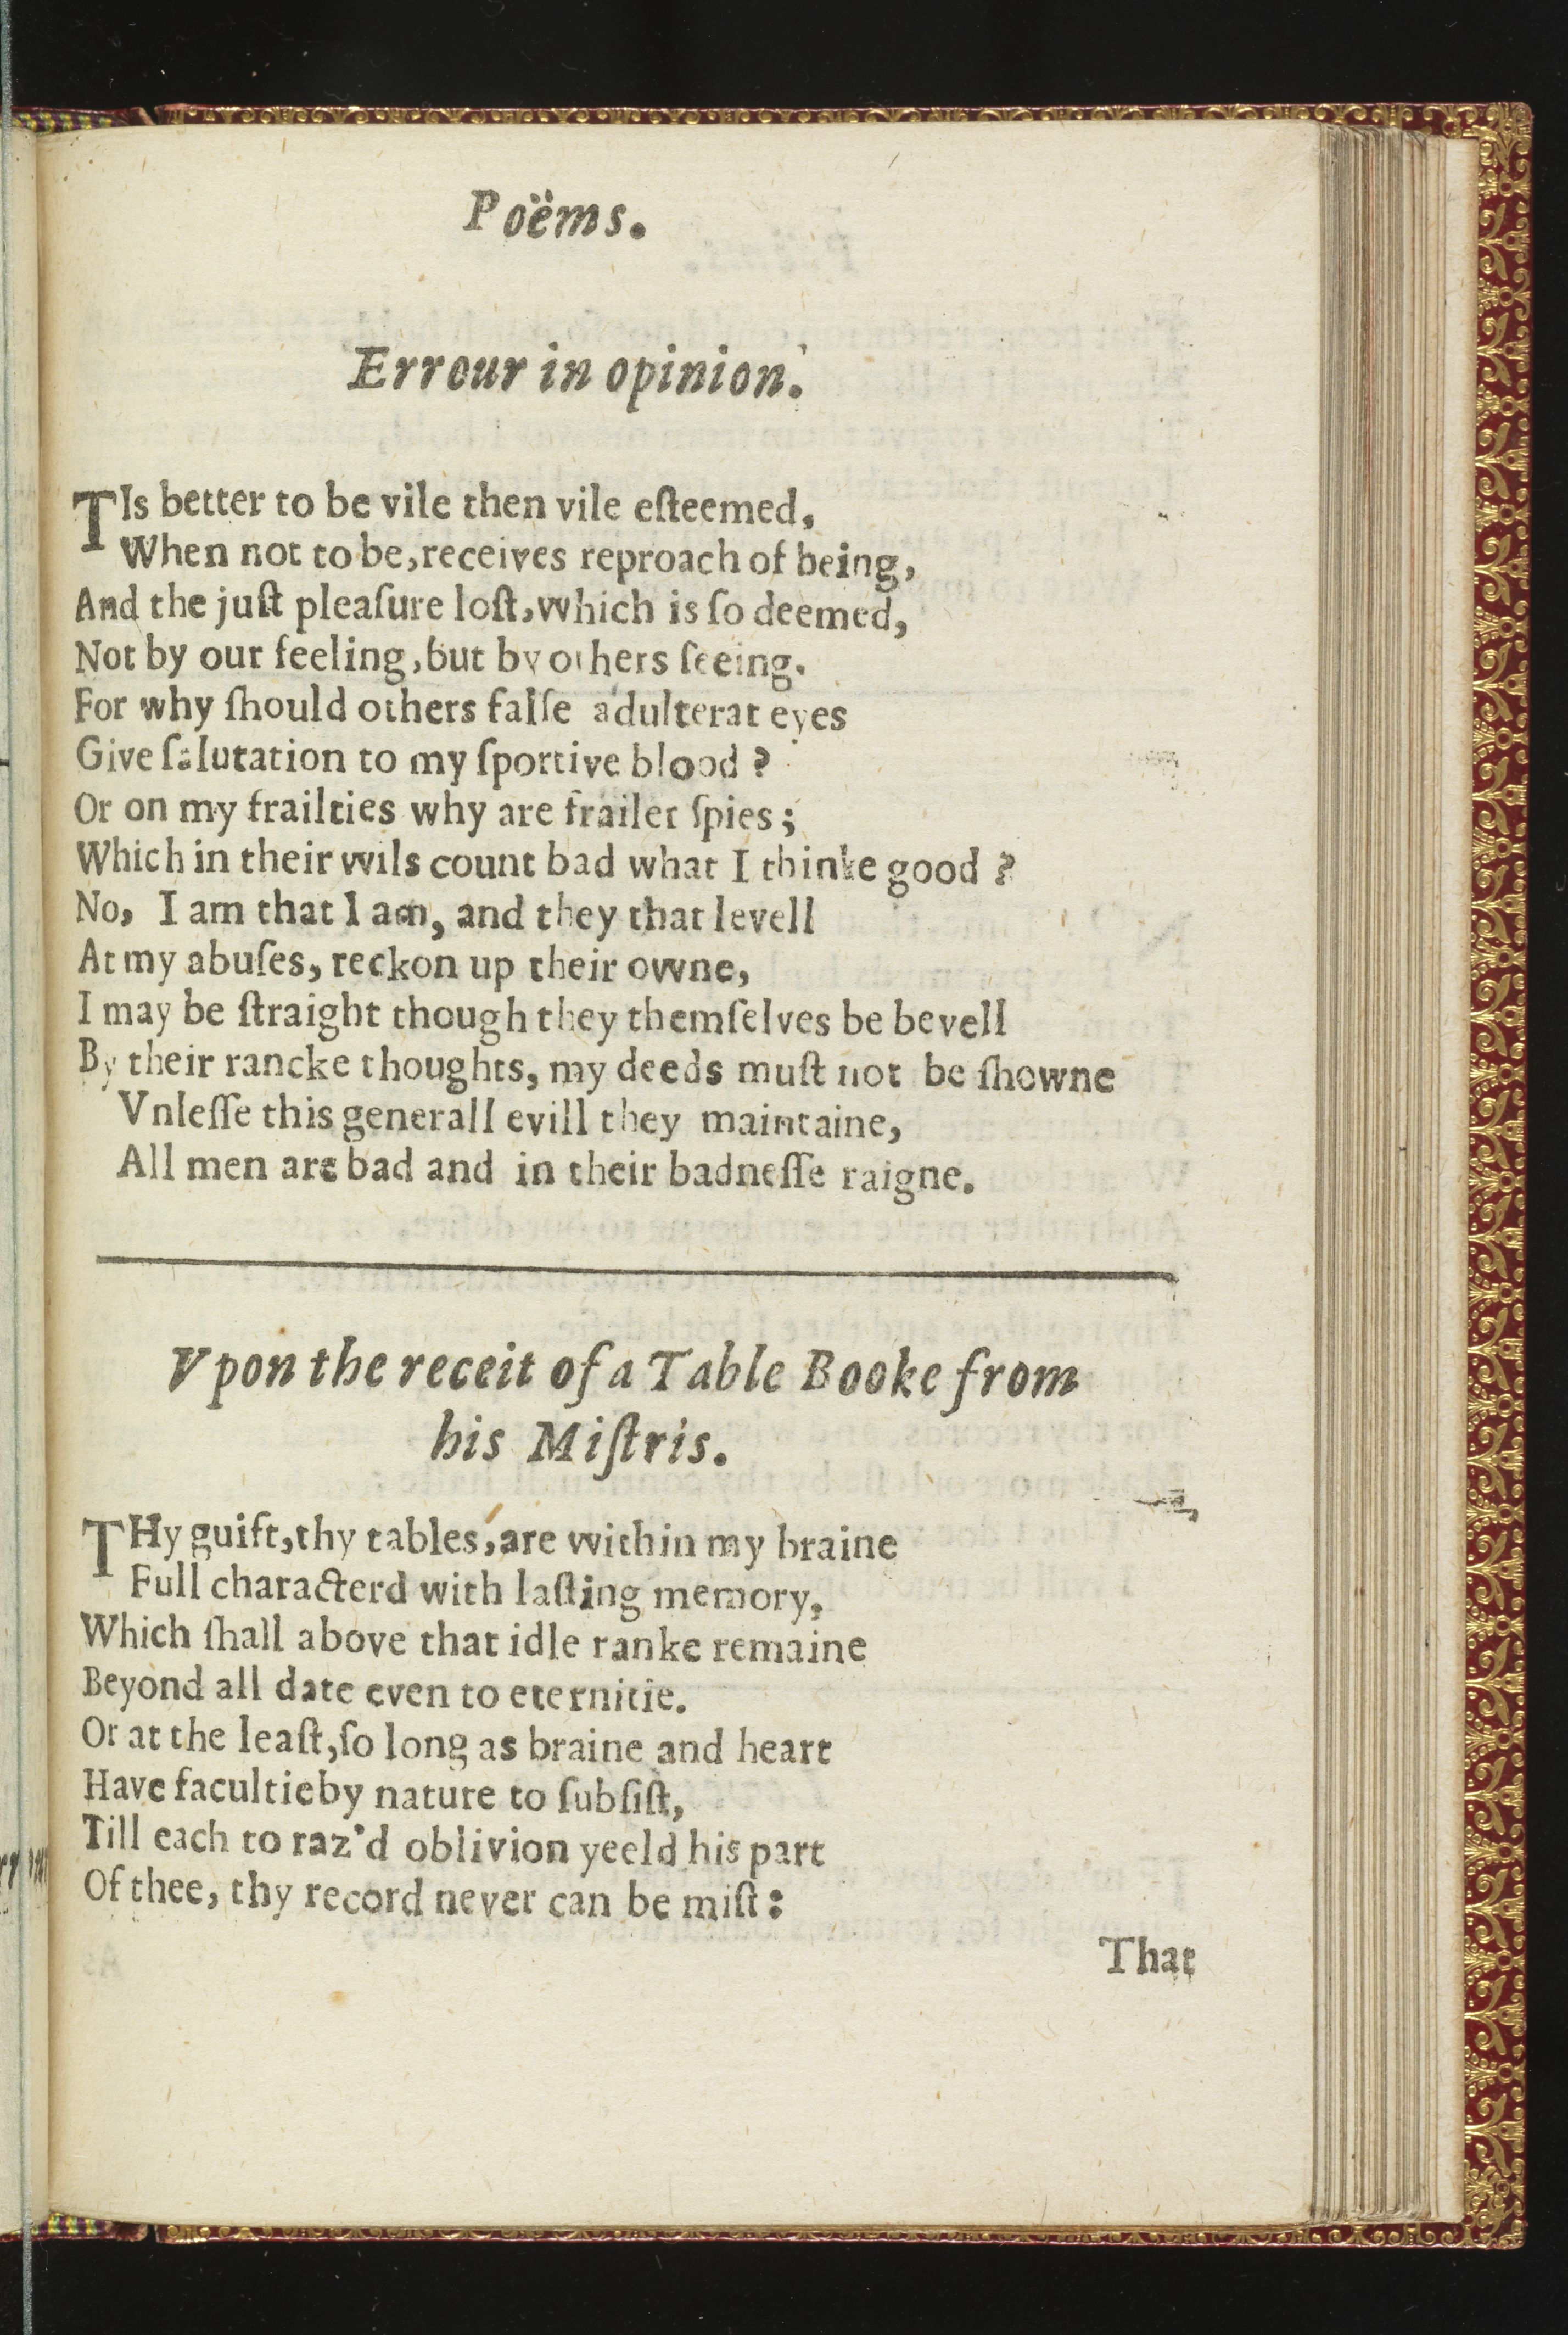 Poëms.
Errour in opinion.
TIs better to be vile then vile eſteemed,
When not to be, receives reproach of being,
And the juſt pleaſure loſt, which is ſo deemed,
Not by our feeling, but by others ſeeing.
For why ſhould others falſe adulterat eyes
Give ſalutation to my ſportive blood ?
Or on my frailties why are frailer ſpies ;
Which in their wils count bad what I thinke good ?
No, I am that I am, and they that levell
At my abuſes, reckon up their owne,
I may be ſtraight though they themſelves be bevell
By their rancke thoughts, my deeds muſt not be ſhowne
Vnleſſe this generall evill they maintaine,
All men are bad and in their badneſſe raigne.
Vpon the receit of a Table Booke from
his Miſtris.
THy guift, thy tables, are within my braine
Full characterd with laſting memory,
Which ſhall above that idle ranke remaine
Beyond all date even to eternitie.
Or at the leaſt, ſo long as braine and heart
Have facultieby nature to ſubſiſt,
Till each to raz'd oblivion yeeld his part
Of thee, thy record never can be miſt :
That